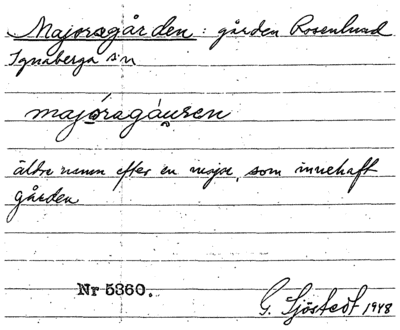 Majorsgården : gården Rosenlund
Ignaberga sn
majóragáuren
äldre namn efter en major, som innehaft
gården
Nr 5360.
G. Sjöstedt 1948